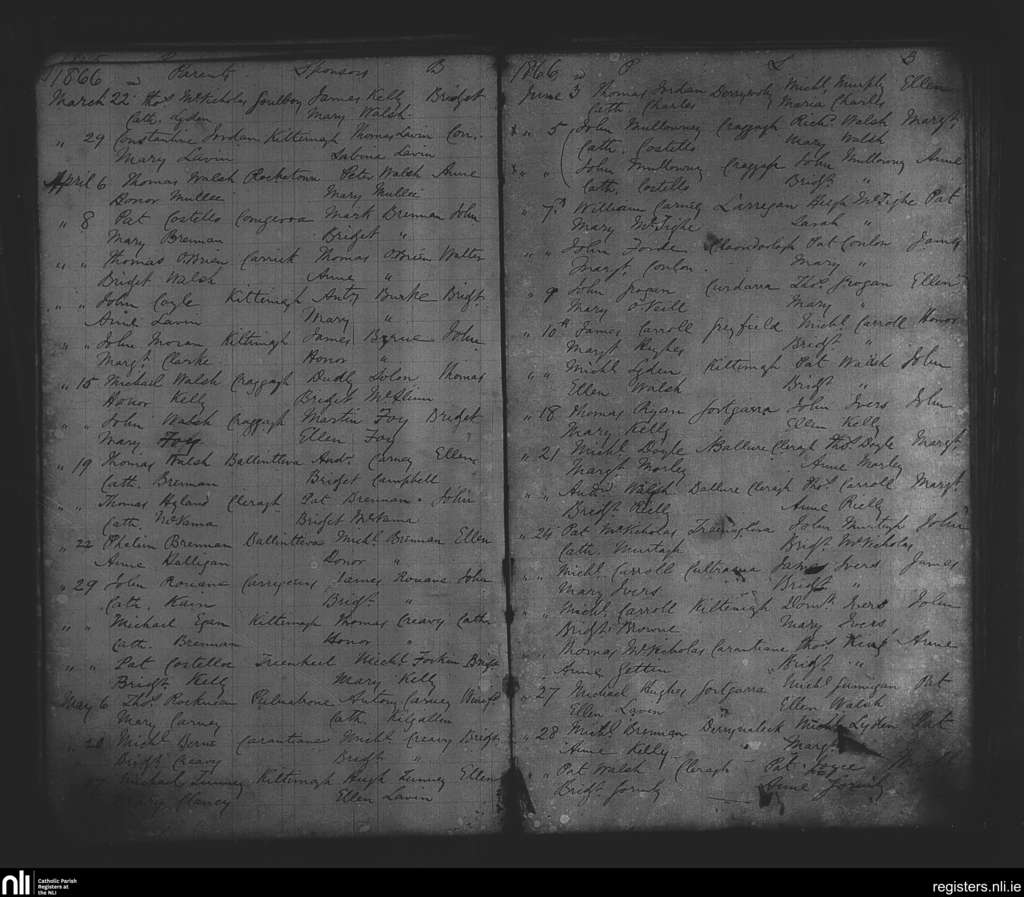 1866 Parents Sponsors B
March 22 Thos McNicholas James Kelly Bridget
Cath. Lyden Mary Walsh
" 29 Constantine Jordan Kiltimagh Thomas Lavin Con.
Mary Lavin Sabina Lavin
April 6 Thomas Walsh Rocketown Peter Walsh Anne
Honor Mullee Mary Mullee
" 8 Pat Costello Mark Brennan John
Mary Brennan Bridget "
" " Thomas O'Brien Carrick Thomas O'Brien Walter
Bridget Walsh Anne "
" " John Coyle Kiltimagh Anty Burke Bridgt
Anne Lavin Mary "
" " John Moran Kiltimagh James Byrne John
Margt. Clarke Honor "
" 15 Michael Walsh Craggagh Dudly Solon Thomas
Honor Kelly Bridget
" " John Walsh Craggagh Martin Foy Bridget
Mary Foy Ellen Foy
" 19 Thomas Walsh Ballintteva Andw. Carney Ellen
Cath. Brennan Bridget Campbell
" " Thomas Hyland Cleragh Pat Brennan John
Cath. McNama Bridget McNama
" 22 Phelim Brennan Ballintteva Michl. Brennan Ellen
Anne Halligan Honor "
" 29 John Rouane James Rouane John
Cath. Kain Bridgt. "
" " Michael Egan Kiltimagh Thomas Creavy Cath.
Cath. Brennan Honor "
" " Pat Costelloe Treenkeel Michl. Forkin Bridgt
Bridgt. Kelly Mary Kelly
May 6 Thos. Antony Carney
Mary Carney Cath. Kilgallen
Michl. Carantiane Michl. Creavy Bridgt
Bridgt Creavy Bridgt "
Michael Tunney Kiltimagh Hugh Tunney Ellen
Mary Clancy Ellen Lavin
1866 P S B
June 3 Thomas Jordan Michl. Murphy Ellen
Cath Charles Maria Charles
" 5 John Mullowney Craggagh Richd. Walsh Margt.
Cath. Costello Mary Walsh
" " John Mullowney Craggagh John Mullowny Anne
Cath. Costello Bridgt. "
" 7th William Carney Larregan Hugh McTighe Pat
Mary McTighe Sarah "
" " John Forde Pat Conlon James
Margt. Conlon. Mary "
" 9 John Grogan Thos. Grogan Ellen
Mary O'Neill Mary "
" 10th James Carroll Greyfield Michl. Carroll Honor
Margt Hughes Bridgt "
" " Michl Lyden Kiltimagh Pat Walsh John
Ellen Walsh Bridgt "
" 18 Thomas Ryan Gortgarra John Ivers John
Mary Kelly Ellen Kelly
" 21 Michl Doyle Ballure Cleragh Thos. Doyle Margt.
Margt Morley Anne Morley
" " Walsh Ballure Cleragh Thos. Carroll Margt
Bridgt Rielly Anne Rielly
" 24 Pat McNicholas John Murtagh John
Cath. Murtagh Bridgt. McNicholas
" " Michl. Carroll James Ivers James
Mary Ivers Bridgt "
" Michl. Carroll Kiltimagh Ivers John
Bridgt Browne Mary
" Thomas McNicholas Carantiane Thos. Anne
Anne Bridgt. "
" 27 Michael Hughes Gortgarra Michl. Pat
Ellen Lavin Ellen Walsh
" 28 Michl. Brennan Michl Lyden Pat
Anne Kelly Margt
" " Pat Walsh Cleragh Pat Joyce
Bridgt. Anne
nli
Catholic Parish
Registers at
the NLI
registers.nli.ie